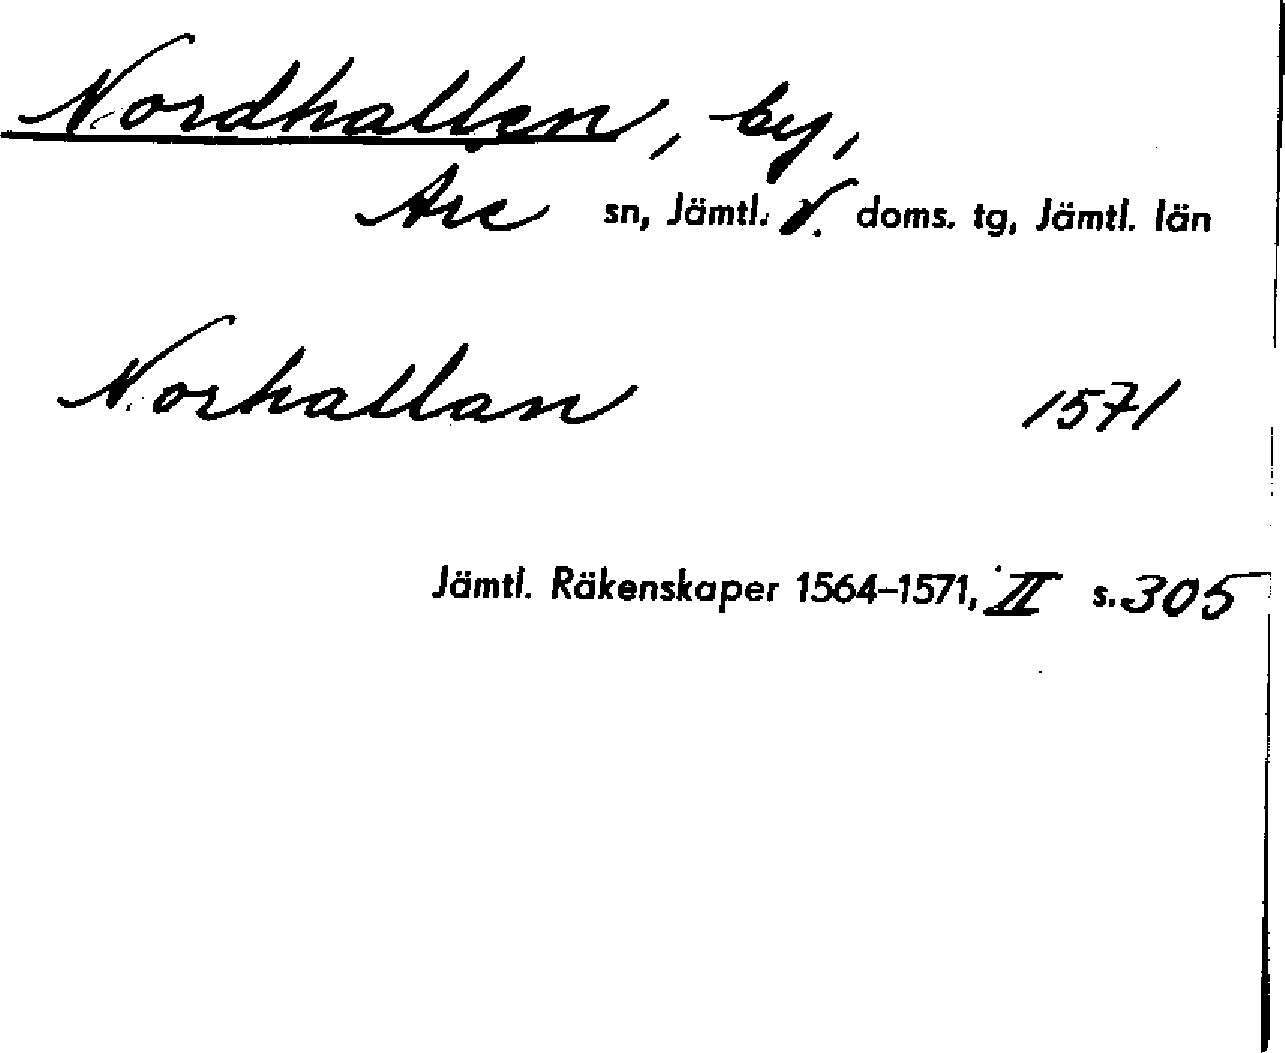 Nordhallen, by,
Åre sn, Jämtl. V. doms. tg, Jämtl. län
Norhallan 1571
Jämtl. Räkenskaper 1564–1571, II s. 305